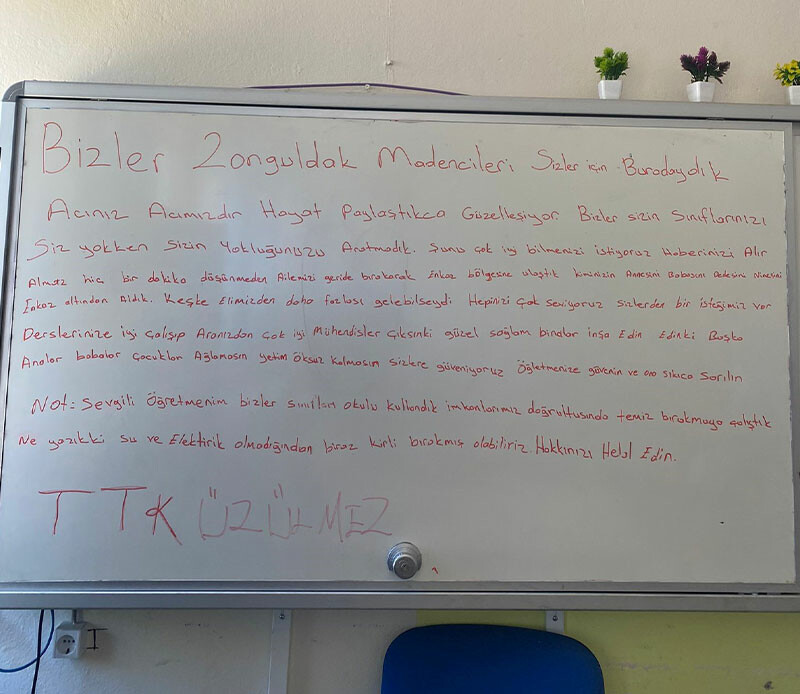 Bizler Zonguldak Madencileri Sizler için Buradaydık
Acınız Acımızdır Hayat Paylaştıkca Güzelleşiyor Bizler sizin Sınıflarınızı
Siz yokken Sizin Yokluğunuzu Aratmadık. Şunu çok iyi bilmenizi istiyoruz Haberinizi Alır
Almaz hiç bir dakika düşünmeden Ailemizi geride bırakarak Enkaz bölgesine ulaştık kiminizin Annesini Babasını Dedesini Ninesini
Enkaz altından Aldık. Keşke Elimizden daha fazlası gelebilseydi Hepinizi çok seviyoruz sizlerden bir isteğimiz var
Derslerinize iyi çalışıp Aranızdan çok iyi Mühendisler çıksınki güzel sağlam binalar inşa Edin Edinki Başka
Analar babalar çocuklar Ağlamasın yetim öksüz kalmasın sizlere güveniyoruz Öğretmenize güvenin ve ona sıkıca sarılın
Not: Sevgili Öğretmenim bizler sınıfları okulu kullandık imkanlarımız doğrultusunda temiz bırakmaya çalıştık
Ne yazıkki su ve Elektirik olmadığından biraz kirli bırakmış olabiliriz. Hakkınızı Helal Edin.
TTK ÜZÜLMEZ